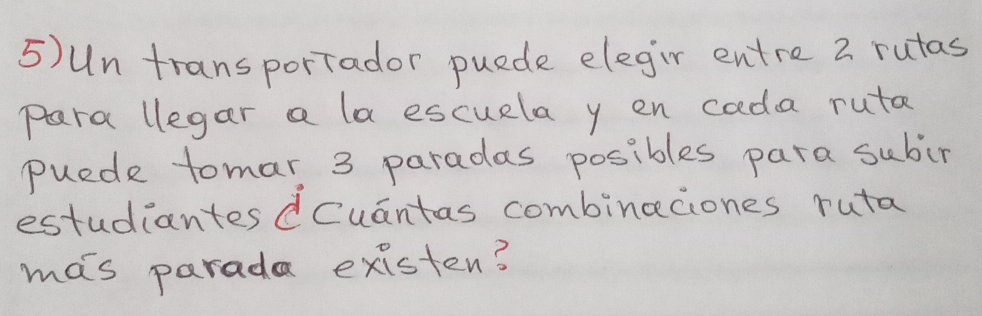 5) Un transportador puede elegir entre 2 rutas
para llegar a la escuela y en cada ruta
puede tomar 3 paradas posibles para subir
estudiantes ¿Cuántas combinaciones ruta
más parada existen?